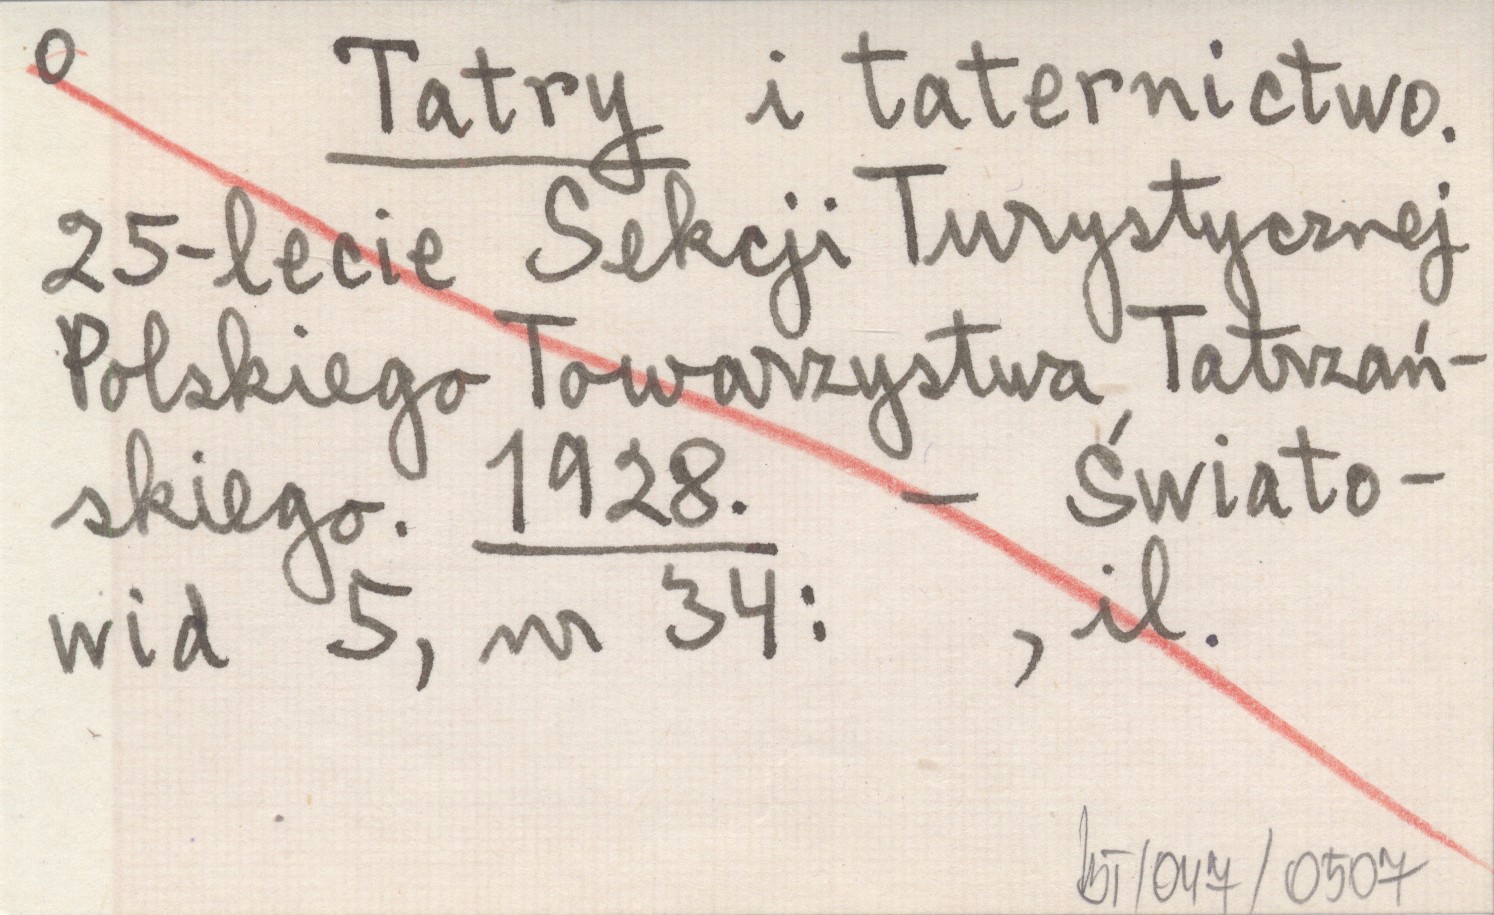 0 Tatry i taternictwo.
25-lecie Sekcji Turystycznej
Polskiego Towarzystwa Tatrzań-
skiego. 1928. — Świato-
wid 5, nr 34: , il.
/047/0507